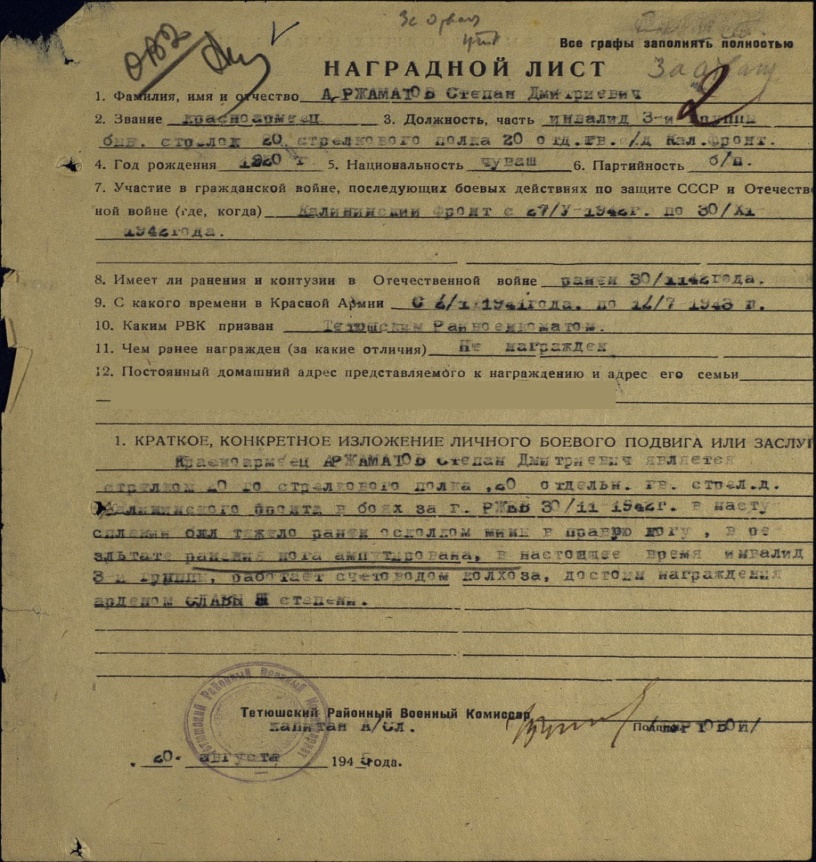 За отвагу
Все графы заполнять полностью
ОВ2
НАГРАДНОЙ ЛИСТ
За отвагу
2
1. Фамилия, имя и отчество АРЖАМАТОВ Степан Дмитриевич
2. Звание красноармеец 3. Должность, часть инвалид 3-и группы
быв. стрелок 20 стрелкового полка 20 отд.гв.с/д Кал.фронт.
4. Год рождения 1920 г 5. Национальность чуваш 6. Партийность б/п.
7. Участие в гражданской войне, последующих боевых действиях по защите СССР и Отечестве
ной войне (где, когда) Калининский фронт с 27/У-1942г. по 30/XI-
1942года.
8. Имеет ли ранения и контузии в Отечественной войне ранен 30/1142года.
9. С какого времени в Красной Армии С 2/1 1941года. по 12/7 1943 г.
10. Каким РВК призван Тетюшским Райвоенкоматом.
11. Чем ранее награжден (за какие отличия) Не награжден
12. Постоянный домашний адрес представляемого к награждению и адрес его семьи
1. КРАТКОЕ, КОНКРЕТНОЕ ИЗЛОЖЕНИЕ ЛИЧНОГО БОЕВОГО ПОДВИГА ИЛИ ЗАСЛУГ
Красноармеец АРЖАМАТОВ Степан Дмитриевич является
стрелком 20 го стрелкового полка ,20 отдельн. гв. стрел.д.
Калининского фронта в боях за г. РЖЕВ 30/11 1942г. в насту
сплении был тяжело ранен осколком мины в правую ногу , в ре
зультате ранения нога ампутирована, в настоящее время инвалид
3-и группы, работает счетоводом колхоза, достоин награждения
арденом СЛАВЫ Ш степени.
Тетюшский Районный Военный Комиссариат
Тетюшский Районный Военный Комиссар
капитан А/Сл.
20. августа 1945года.